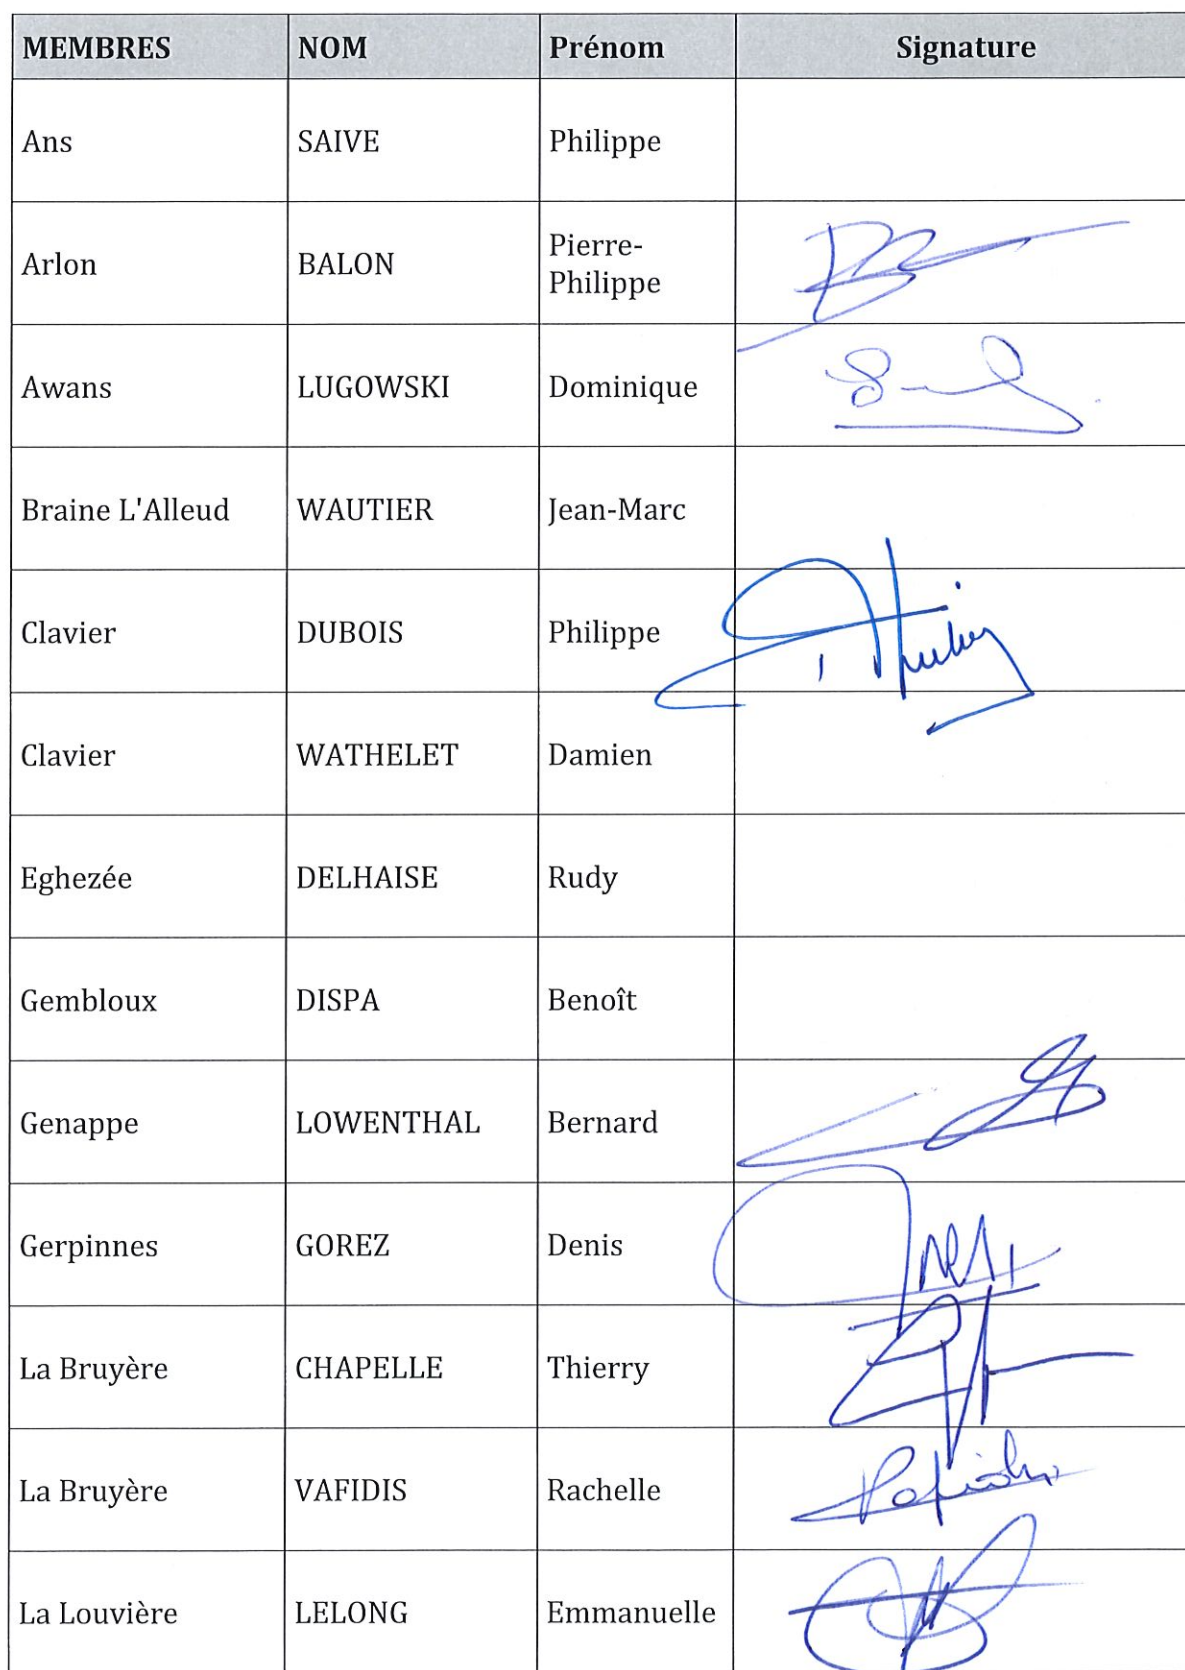 MEMBRES NOM Prénom Signature
Ans SAIVE Philippe
Arlon BALON Pierre-
Philippe
Awans LUGOWSKI Dominique
Braine L'Alleud WAUTIER Jean-Marc
Clavier DUBOIS Philippe
Clavier WATHELET Damien
Eghezée DELHAISE Rudy
Gembloux DISPA Benoît
Genappe LOWENTHAL Bernard
Gerpinnes GOREZ Denis
La Bruyère CHAPELLE Thierry
La Bruyère VAFIDIS Rachelle
La Louvière LELONG Emmanuelle